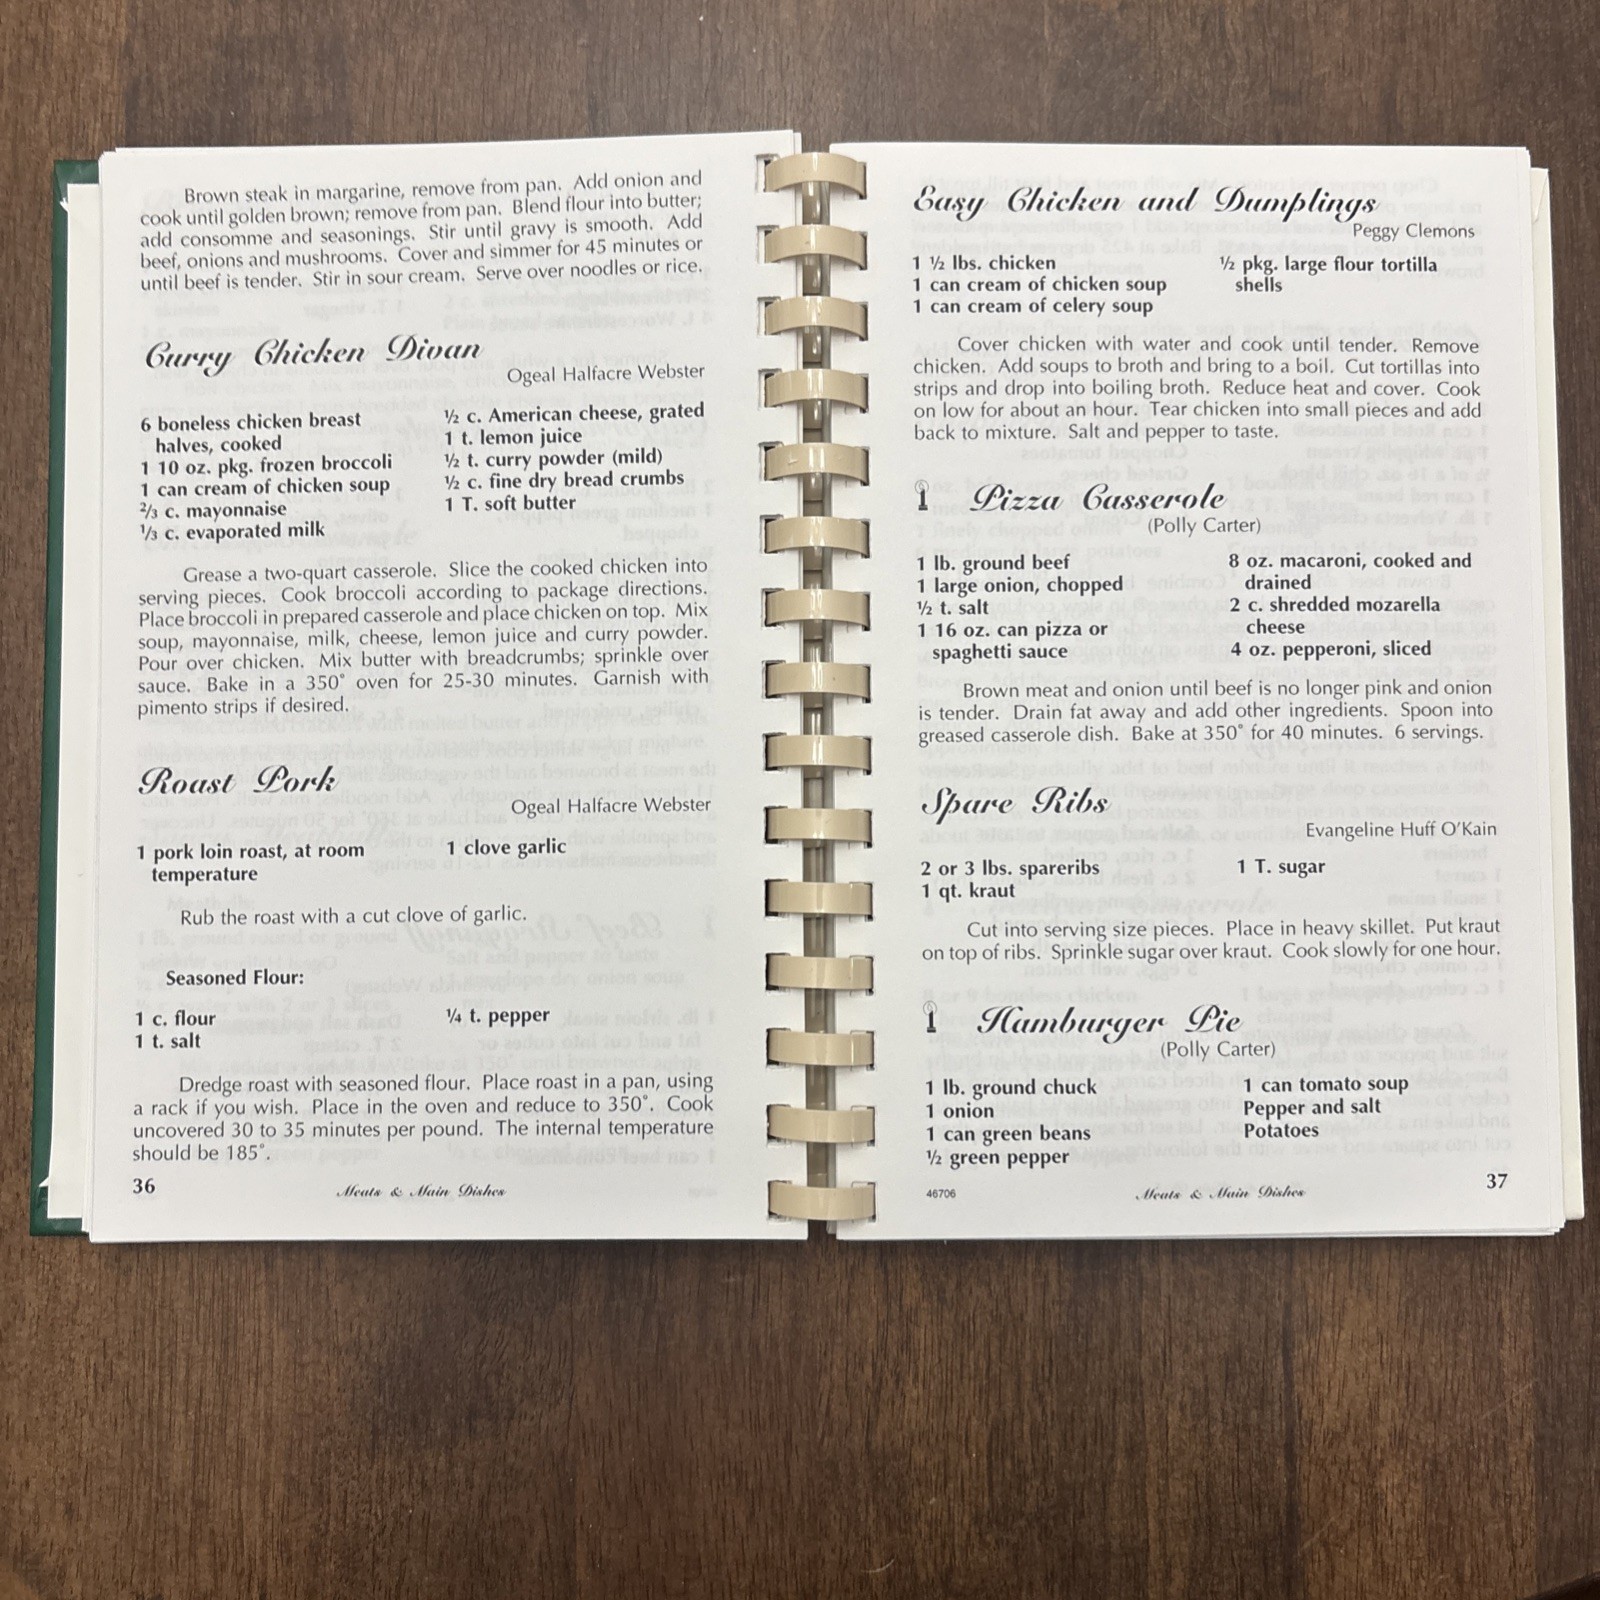 Brown steak in margarine, remove from pan. Add onion and
cook until golden brown; remove from pan. Blend flour into butter;
add consomme and seasonings. Stir until gravy is smooth. Add
beef, onions and mushrooms. Cover and simmer for 45 minutes or
until beef is tender. Stir in sour cream. Serve over noodles or rice.
Curry Chicken Divan
Ogeal Halfacre Webster
6 boneless chicken breast
halves, cooked
1 10 oz. pkg. frozen broccoli
1 can cream of chicken soup
2/3 c. mayonnaise
1/3 c. evaporated milk
½ c. American cheese, grated
1 t. lemon juice
½ t. curry powder (mild)
½ c. fine dry bread crumbs
1 T. soft butter
Grease a two-quart casserole. Slice the cooked chicken into
serving pieces. Cook broccoli according to package directions.
Place broccoli in prepared casserole and place chicken on top. Mix
soup, mayonnaise, milk, cheese, lemon juice and curry powder.
Pour over chicken. Mix butter with breadcrumbs; sprinkle over
sauce. Bake in a 350° oven for 25-30 minutes. Garnish with
pimento strips if desired.
Roast Pork
Ogeal Halfacre Webster
1 pork loin roast, at room
temperature
1 clove garlic
Rub the roast with a cut clove of garlic.
Seasoned Flour:
1 c. flour
1 t. salt
¼ t. pepper
Dredge roast with seasoned flour. Place roast in a pan, using
a rack if you wish. Place in the oven and reduce to 350°. Cook
uncovered 30 to 35 minutes per pound. The internal temperature
should be 185°.
36
Meats & Main Dishes
Easy Chicken and Dumplings
Peggy Clemons
1 ½ lbs. chicken
1 can cream of chicken soup
1 can cream of celery soup
½ pkg. large flour tortilla
shells
Cover chicken with water and cook until tender. Remove
chicken. Add soups to broth and bring to a boil. Cut tortillas into
strips and drop into boiling broth. Reduce heat and cover. Cook
on low for about an hour. Tear chicken into small pieces and add
back to mixture. Salt and pepper to taste.
Pizza Casserole
(Polly Carter)
1 lb. ground beef
1 large onion, chopped
½ t. salt
1 16 oz. can pizza or
spaghetti sauce
8 oz. macaroni, cooked and
drained
2 c. shredded mozarella
cheese
4 oz. pepperoni, sliced
Brown meat and onion until beef is no longer pink and onion
is tender. Drain fat away and add other ingredients. Spoon into
greased casserole dish. Bake at 350° for 40 minutes. 6 servings.
Spare Ribs
Evangeline Huff O'Kain
2 or 3 lbs. spareribs
1 qt. kraut
1 T. sugar
Cut into serving size pieces. Place in heavy skillet. Put kraut
on top of ribs. Sprinkle sugar over kraut. Cook slowly for one hour.
Hamburger Pie
(Polly Carter)
1 lb. ground chuck
1 onion
1 can green beans
½ green pepper
1 can tomato soup
Pepper and salt
Potatoes
46706
Meats & Main Dishes
37